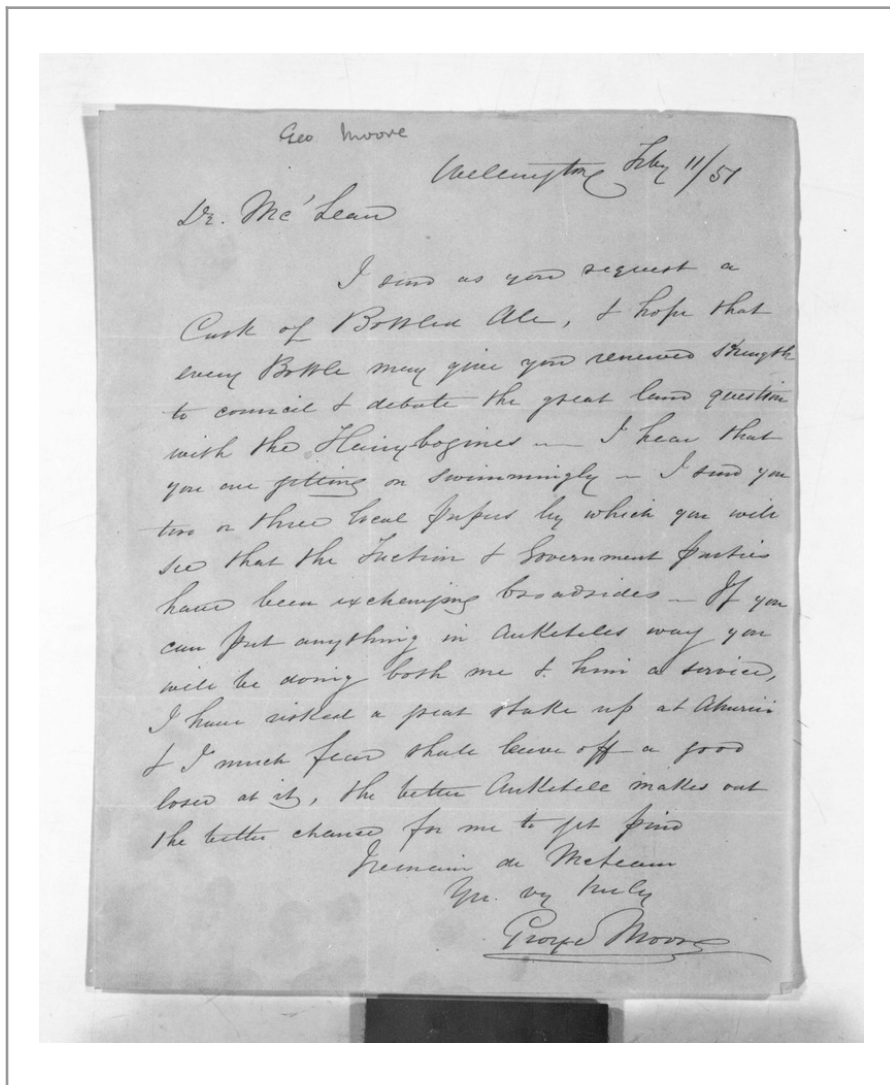 Geo Moore
Wellington Feby 11/51
Dr. Mc'Lean
I send as you request a
Cask of Bottled Ale, & hope that
every Bottle may give you renewed strength
to council & debate the great land question
with the — I hear that
you are getting on swimmingly – I send you
two or three local papers by which you will
see that the Faction & Government parties
have been exchanging broadsides – If you
can put anything in Anketells way you
will be doing both me & him a service,
I have risked a great stake up at Ahuriri
& I much fear shall leave off a good
loser at it, the better Anketell makes out
the better chance for me to get paid
I remain dr McLean
Yrs. vy truly
George Moore